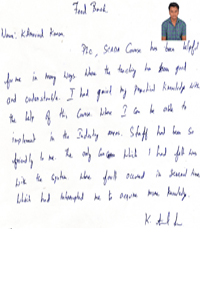 Feed Back
Name: K. Anand Kumar
PLC, SCADA Course has been helpful
for me in many ways where the teaching has been good
and understandable. I had gained my Practical Knowledge with
the help of this Course where I can be able to
implement in the Industry areas. Staff had been so
friendly to me. The only which I had felt was
with the system where fault occured in several times
which had interrupted me to acquire more knowledge.